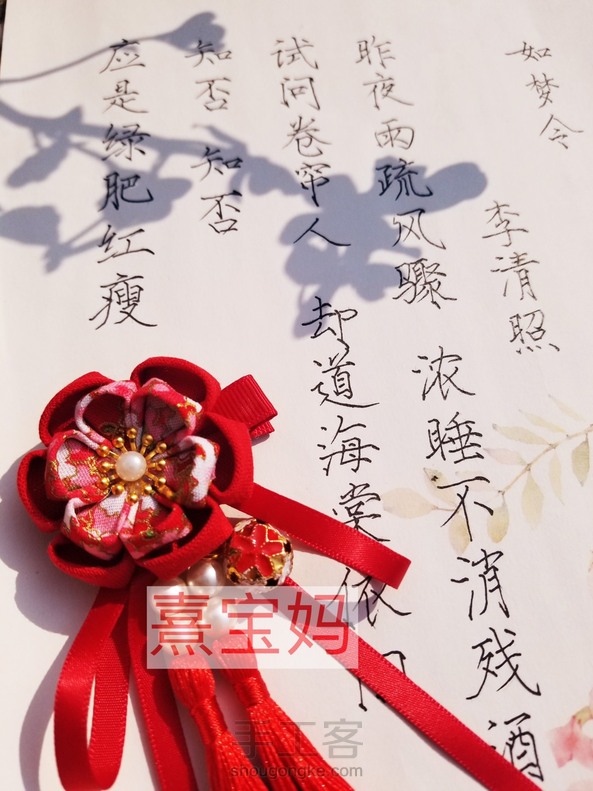 如梦令
李清照
昨夜雨疏风骤
浓睡不消残酒
试问卷帘人
却道海棠依
知否 知否
应是绿肥红瘦
熹宝妈
手工客
shougongke.com